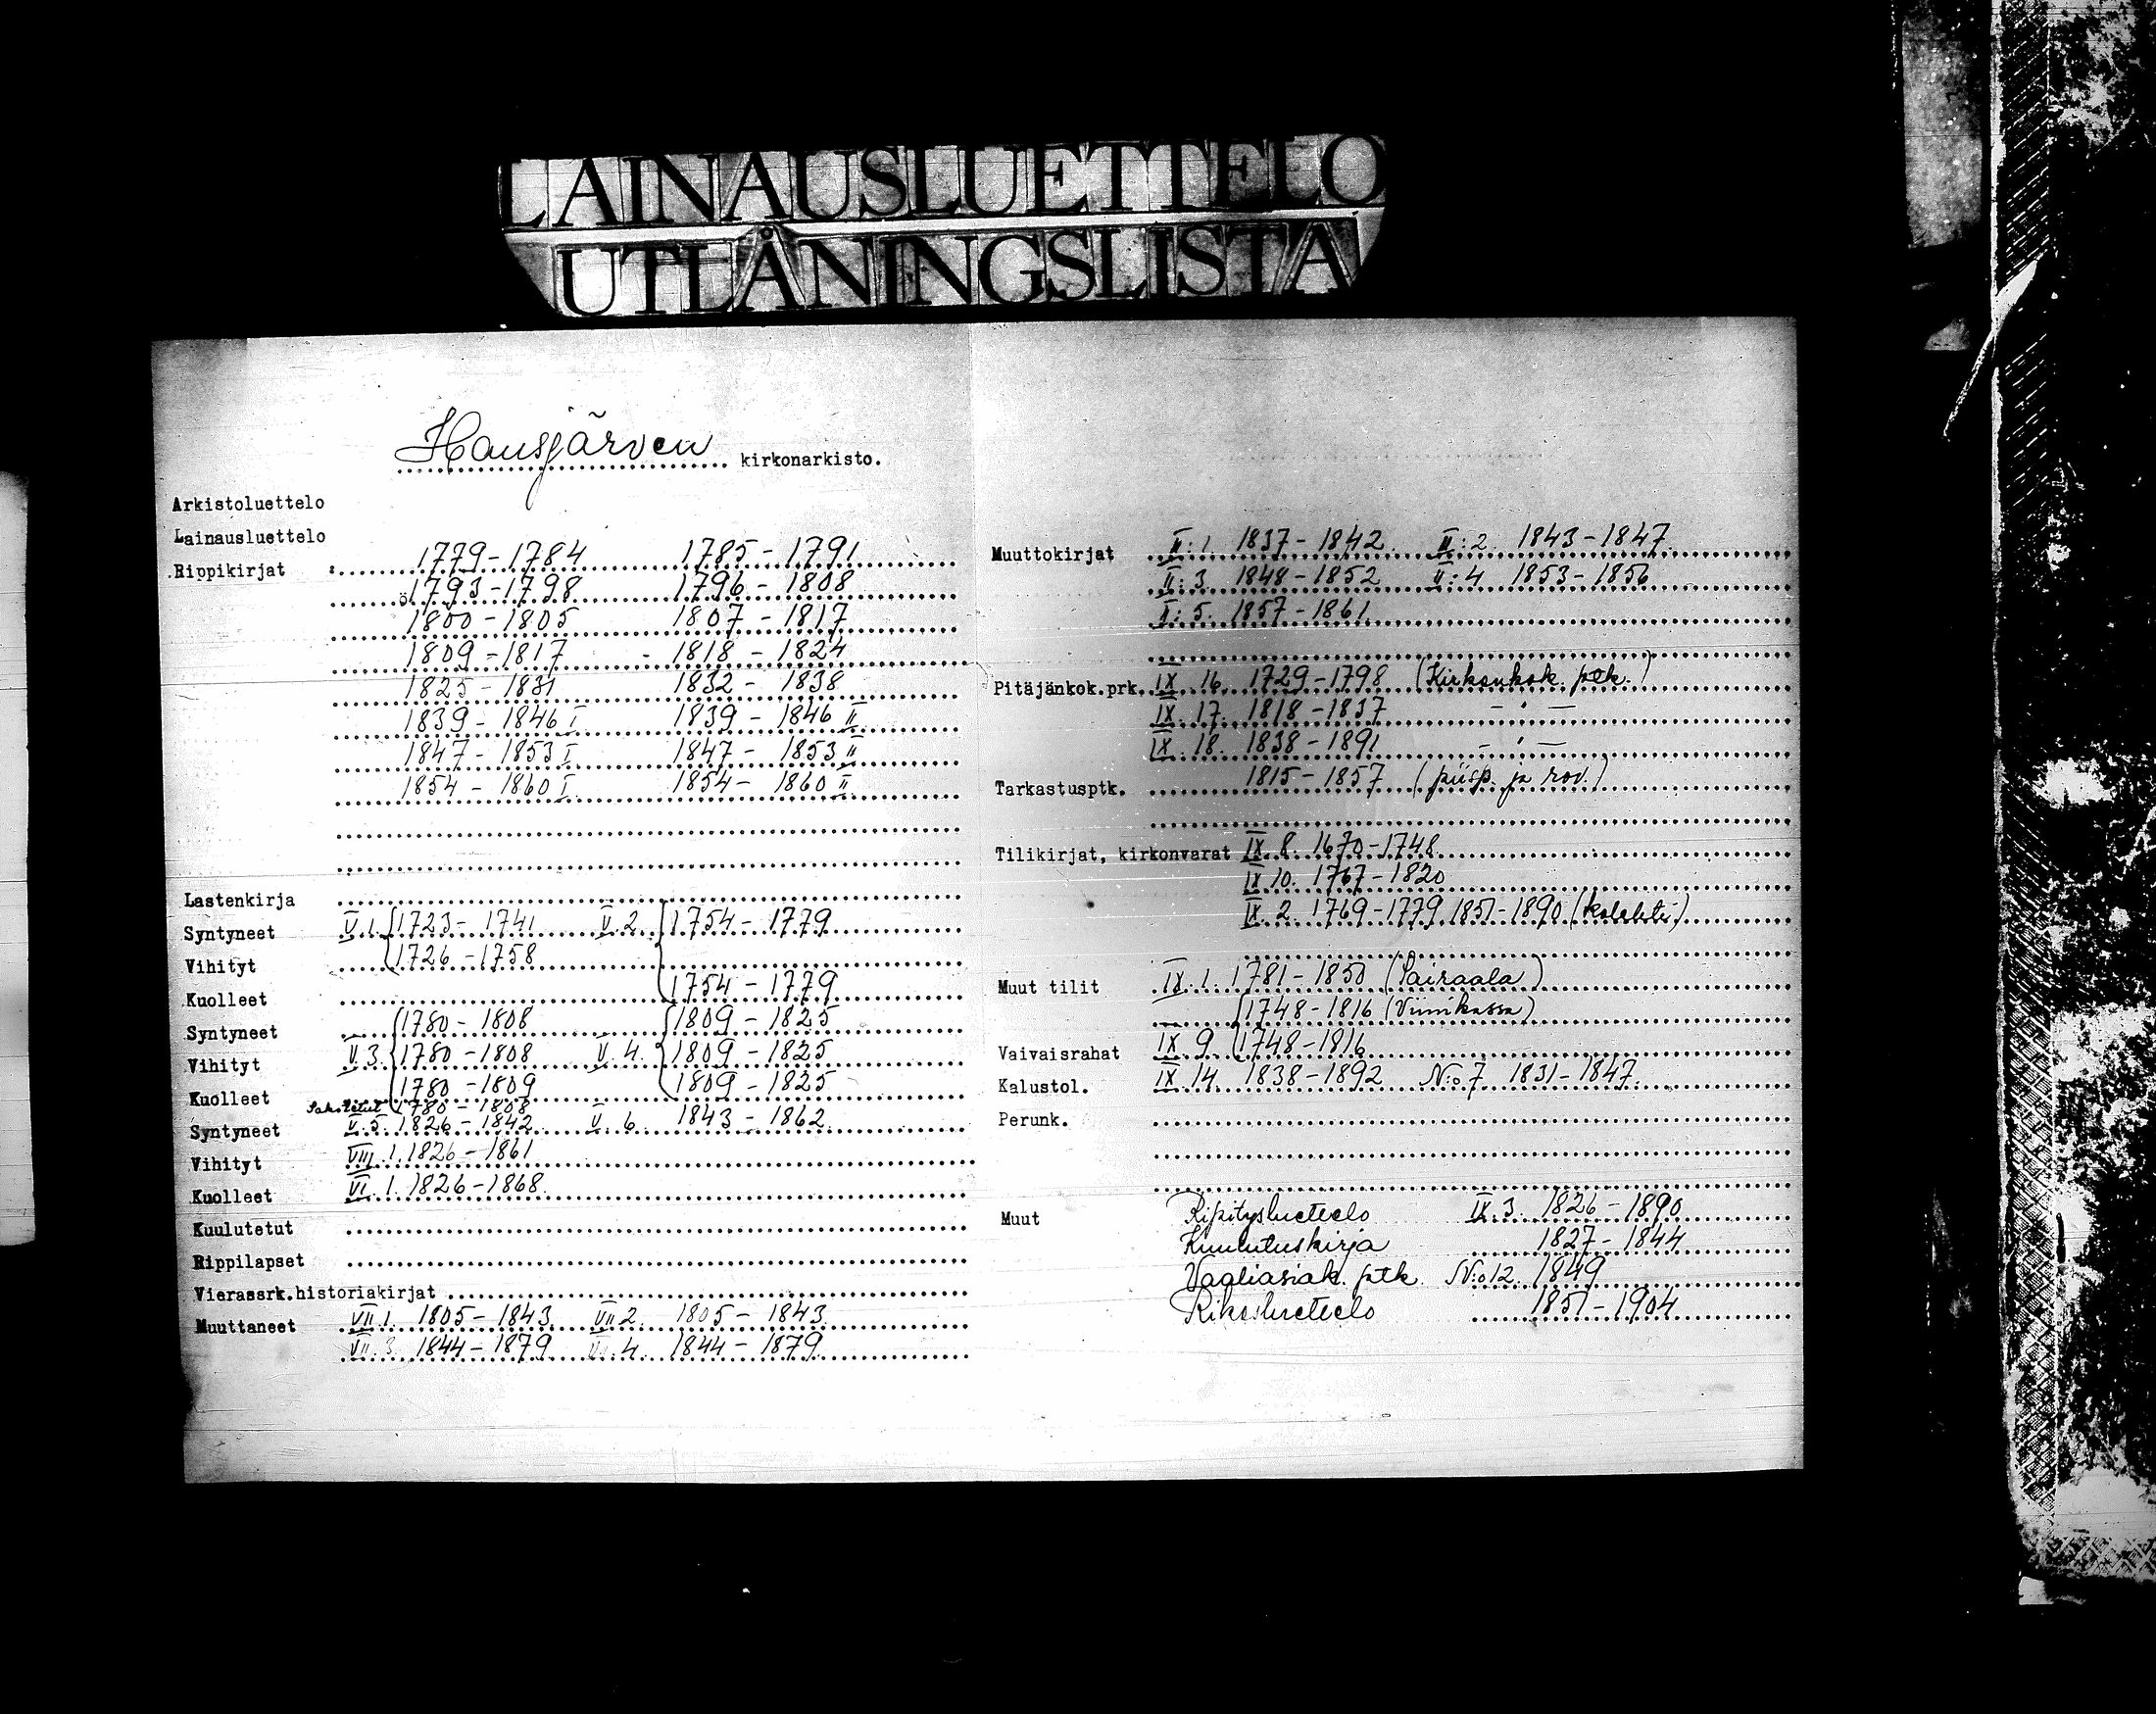 LAINAUSLUETTELO
UTLÅNINGSLISTA
Hausjärven kirkonarkisto.
Arkistoluettelo
Lainausluettelo
Rippikirjat 1779-1784 1785-1791
ö1793-1798 1796-1808
1800-1805 1807-1817
1809-1817 - 1818-1824
1825-1831 1832-1838
1839-1846 I 1839-1846 II
1847-1853 I 1847-1853 II
1854-1860 I 1854-1860 II
Lastenkirja
Syntyneet V.1. 1723-1741 V.2. 1754-1779
Vihityt 1726-1758
Kuolleet 1754-1779
Syntyneet 1780-1808 1809-1825
Vihityt V.3. 1780-1808 V.4. 1809-1825
Kuolleet 1780-1809 1809-1825
Sakotetut 1780-1808
Syntyneet V.5. 1826-1842 V.6. 1843-1862
Vihityt VIII.1. 1826-1861
Kuolleet VI.1. 1826-1868
Kuulutetut
Rippilapset
Vierassrk.historiakirjat
Muuttaneet VII.1. 1805-1843 VII.2. 1805-1843
VII.3. 1844-1879 VII.4. 1844-1879
Muuttokirjat II:1. 1837-1842 II:2. 1843-1847
II:3. 1848-1852 II:4. 1853-1856
II:5. 1857-1861
Pitäjänkok.prk. IX.16. 1729-1798 (Kirkonkok. ptk.)
IX.17. 1818-1837 - " -
IX.18. 1838-1891 - " -
Tarkastusptk. 1815-1857 (piisp. ja rov.)
Tilikirjat, kirkonvarat IX.8. 1670-1748
IX.10. 1767-1820
IX.2. 1769-1779 1851-1890 (kolehti)
Muut tilit IX.1. 1781-1850 (Sairaala)
1748-1816 (Viinikassa)
Vaivaisrahat IX.9. 1748-1816
Kalustol. IX.14. 1838-1892 N:o 7 1831-1847
Perunk.
Muut Ripitysluettelo IX.3. 1826-1890
Kuulutuskirja 1827-1844
Vaaliasiak. ptk. N:o 12. 1849
Rikosluettelo 1851-1904